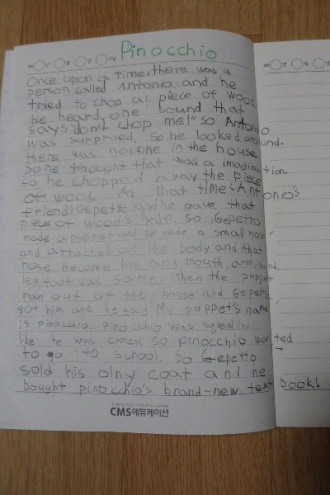 Pinocchio
Once upon a time, there was a
person called Antonio, and he
tried to chop a piece of wood
he heard one sound that
says "don't chop me!" so Antonio
was surprised. So he looked around.
there was noone in the house
So he thought that was a imagination.
so he chopped away the piece
of wood. At that time (Antonio's
friend) Gepetto and he gave that
piece of wood's half. So, Gepetto
made a puppet and he made a small nose
and attached at the body and that
nose became big and mouth, arm, hand,
leg, foot was same. Then the puppet
ran out of the house and Gepetto
got him and he said My puppet's name
is pinocchio. Pinocchio was
like he was crazy. So pinocchio wanted
to go to school. So Gepetto
sold his olny coat and he
bought pinocchio's brand-new text book!
CMS에듀케이션